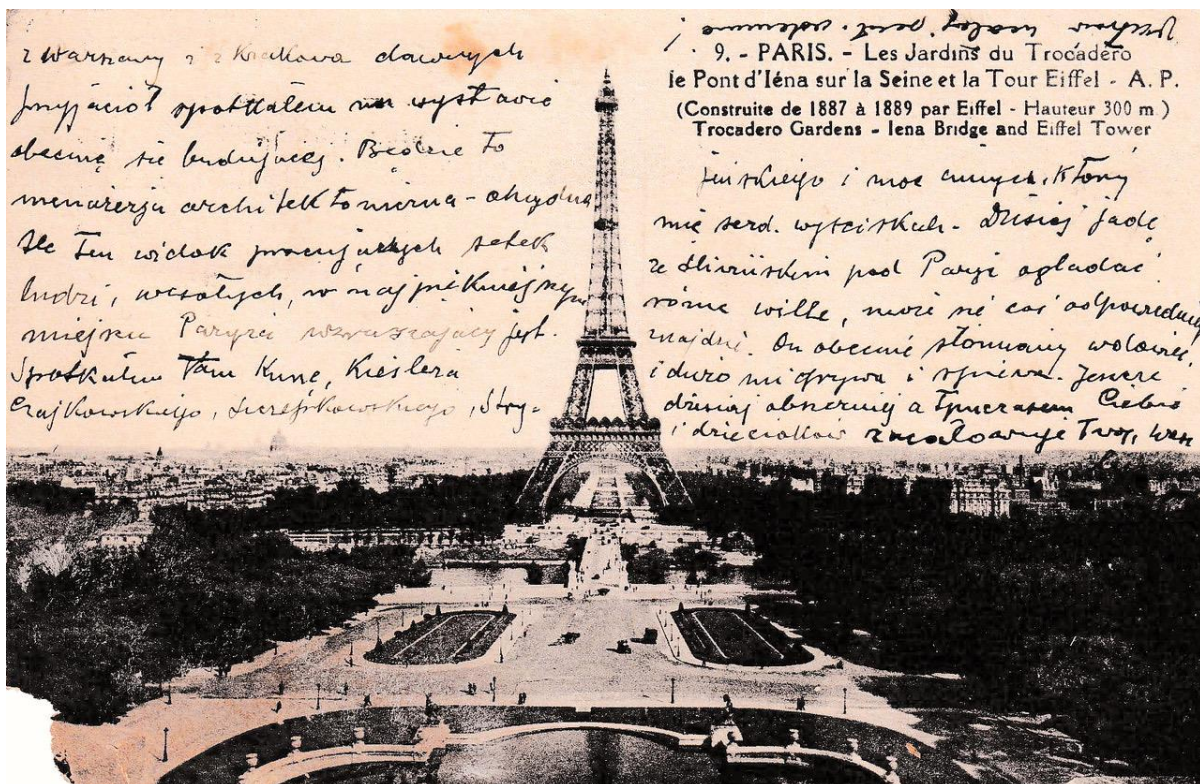 z Warszawy i z Krakowa dawnych
przyjaciół spotkałem na wystawie
obecnie się budującej. Będzie to
menażerja architektoniczna - ohydna
ale ten widok pracujących setek
ludzi, wesołych, w najpiękniejszym
miejscu Paryża wzruszający jest.
Spotkałem tam Kunę, Kieslera
Czajkowskiego, Stry-
9. - PARIS. - Les Jardins du Trocadéro
le Pont d'Iéna sur la Seine et la Tour Eiffel - A. P.
(Construite de 1887 à 1889 par Eiffel - Hauteur 300 m.)
Trocadero Gardens - Iena Bridge and Eiffel Tower
jeńskiego i moc innych, którzy
mię serd. wyściskali. Dzisiaj jadę
ze Śliwińskim pod Paryż oglądać
różne wille, może się coś odpowiedniego
znajdzie. On obecnie słomiany wdowiec,
i dużo mi grywa i śpiewa. Jeszcze
dzisiaj obszerniej a tymczasem Ciebie
i dzieciaków Twój